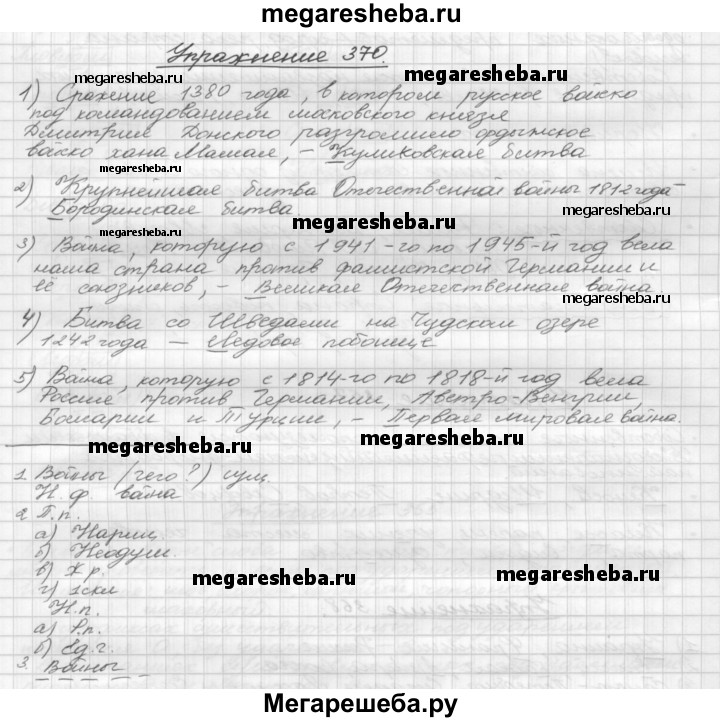 megaresheba.ru
Упражнение 370.
megaresheba.ru
1) Сражение 1380 года, в котором русское войско
под командованием московского князя
Дмитрия Донского разгромило ордынское
войско хана Мамая, – Куликовская битва
megaresheba.ru
2) Крупнейшая битва Отечественной войны 1812 года –
Бородинская битва
megaresheba.ru
megaresheba.ru
3) Война, которую с 1941-го по 1945-й год вела
наша страна против фашистской Германии и
её союзников, – Великая Отечественная война
megaresheba.ru
megaresheba.ru
4) Битва со Шведами на Чудском озере
1242 года — Ледовое побоище
megaresheba.ru
5) Война, которую с 1814-го по 1818-й год вела
Россия против Германии, Австро-Венгрии,
Болгарии и Турции, – Первая мировая война.
megaresheba.ru
megaresheba.ru
1. Войны (чего?) сущ.
Н.ф. война
2. П.п.
а) Нариц.
б) Неодуш.
в) Ж.р.
г) 1 скл
Н.п.
а) Р.п.
б) Ед.г.
3. Войны
megaresheba.ru
megaresheba.ru
Мегарешеба.ру